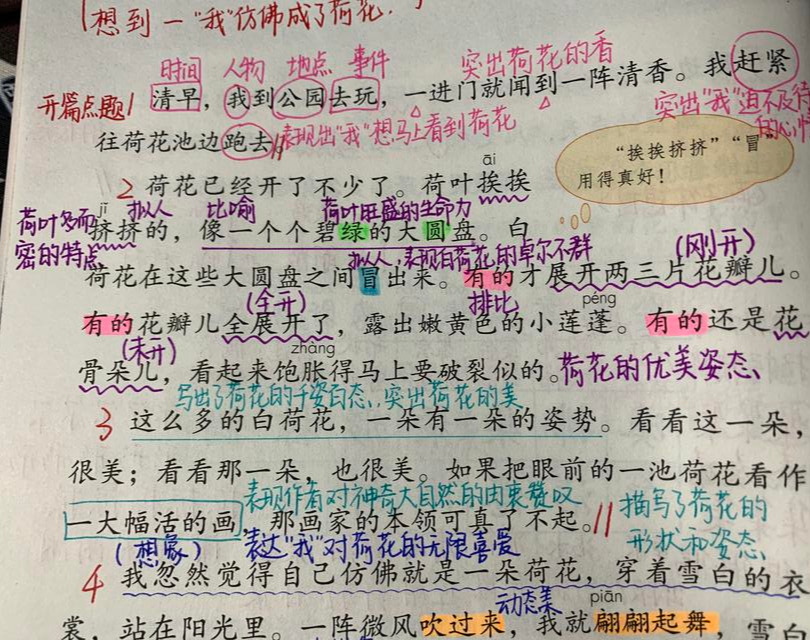 想到一"我"仿佛成了荷花.
时间 人物 地点 事件 突出荷花的香
开篇点题 1 清早，我到公园去玩，一进门就闻到一阵清香。我赶紧
突出"我"迫不及待
的心
往荷花池边跑去。表现出"我"想马上看到荷花
"挨挨挤挤""冒"
用得真好！
āi
2 荷花已经开了不少了。荷叶挨挨
荷叶多而 jǐ 拟人 比喻 荷叶旺盛的生命力
密的特点、
挤挤的，像一个个碧绿的大圆盘。白
拟人，表现白荷花的卓尔不群 (刚开)
荷花在这些大圆盘之间冒出来。有的才展开两三片花瓣儿。
(全开) 排比 péng
有的花瓣儿全展开了，露出嫩黄色的小莲蓬。有的还是花
(未开) zhàng
骨朵儿，看起来饱胀得马上要破裂似的。荷花的优美姿态、
写出了荷花的千姿百态、突出荷花的美
3 这么多的白荷花，一朵有一朵的姿势。看看这一朵，
很美；看看那一朵，也很美。如果把眼前的一池荷花看作
表现作者对神奇大自然的由衷赞叹 描写了荷花的
形状和姿态、
一大幅活的画，那画家的本领可真了不起。
(想象) 表达"我"对荷花的无限喜爱
4 我忽然觉得自己仿佛就是一朵荷花，穿着雪白的衣
动态美 piān
裳，站在阳光里。一阵微风吹过来，我就翩翩起舞，雪白